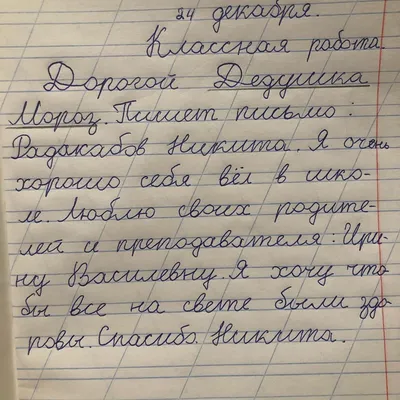 24 декабря.
Классная работа.
Дорогой Дедушка
Мороз. Пишет письмо:
Радакабов Никита. Я очень
хорошо себя вёл в шко-
ле. Люблю своих родите-
лей и преподавателя: Ири-
ну Василевну. Я хочу что
бы все на свете были здо
ровы. Спасибо Никита.